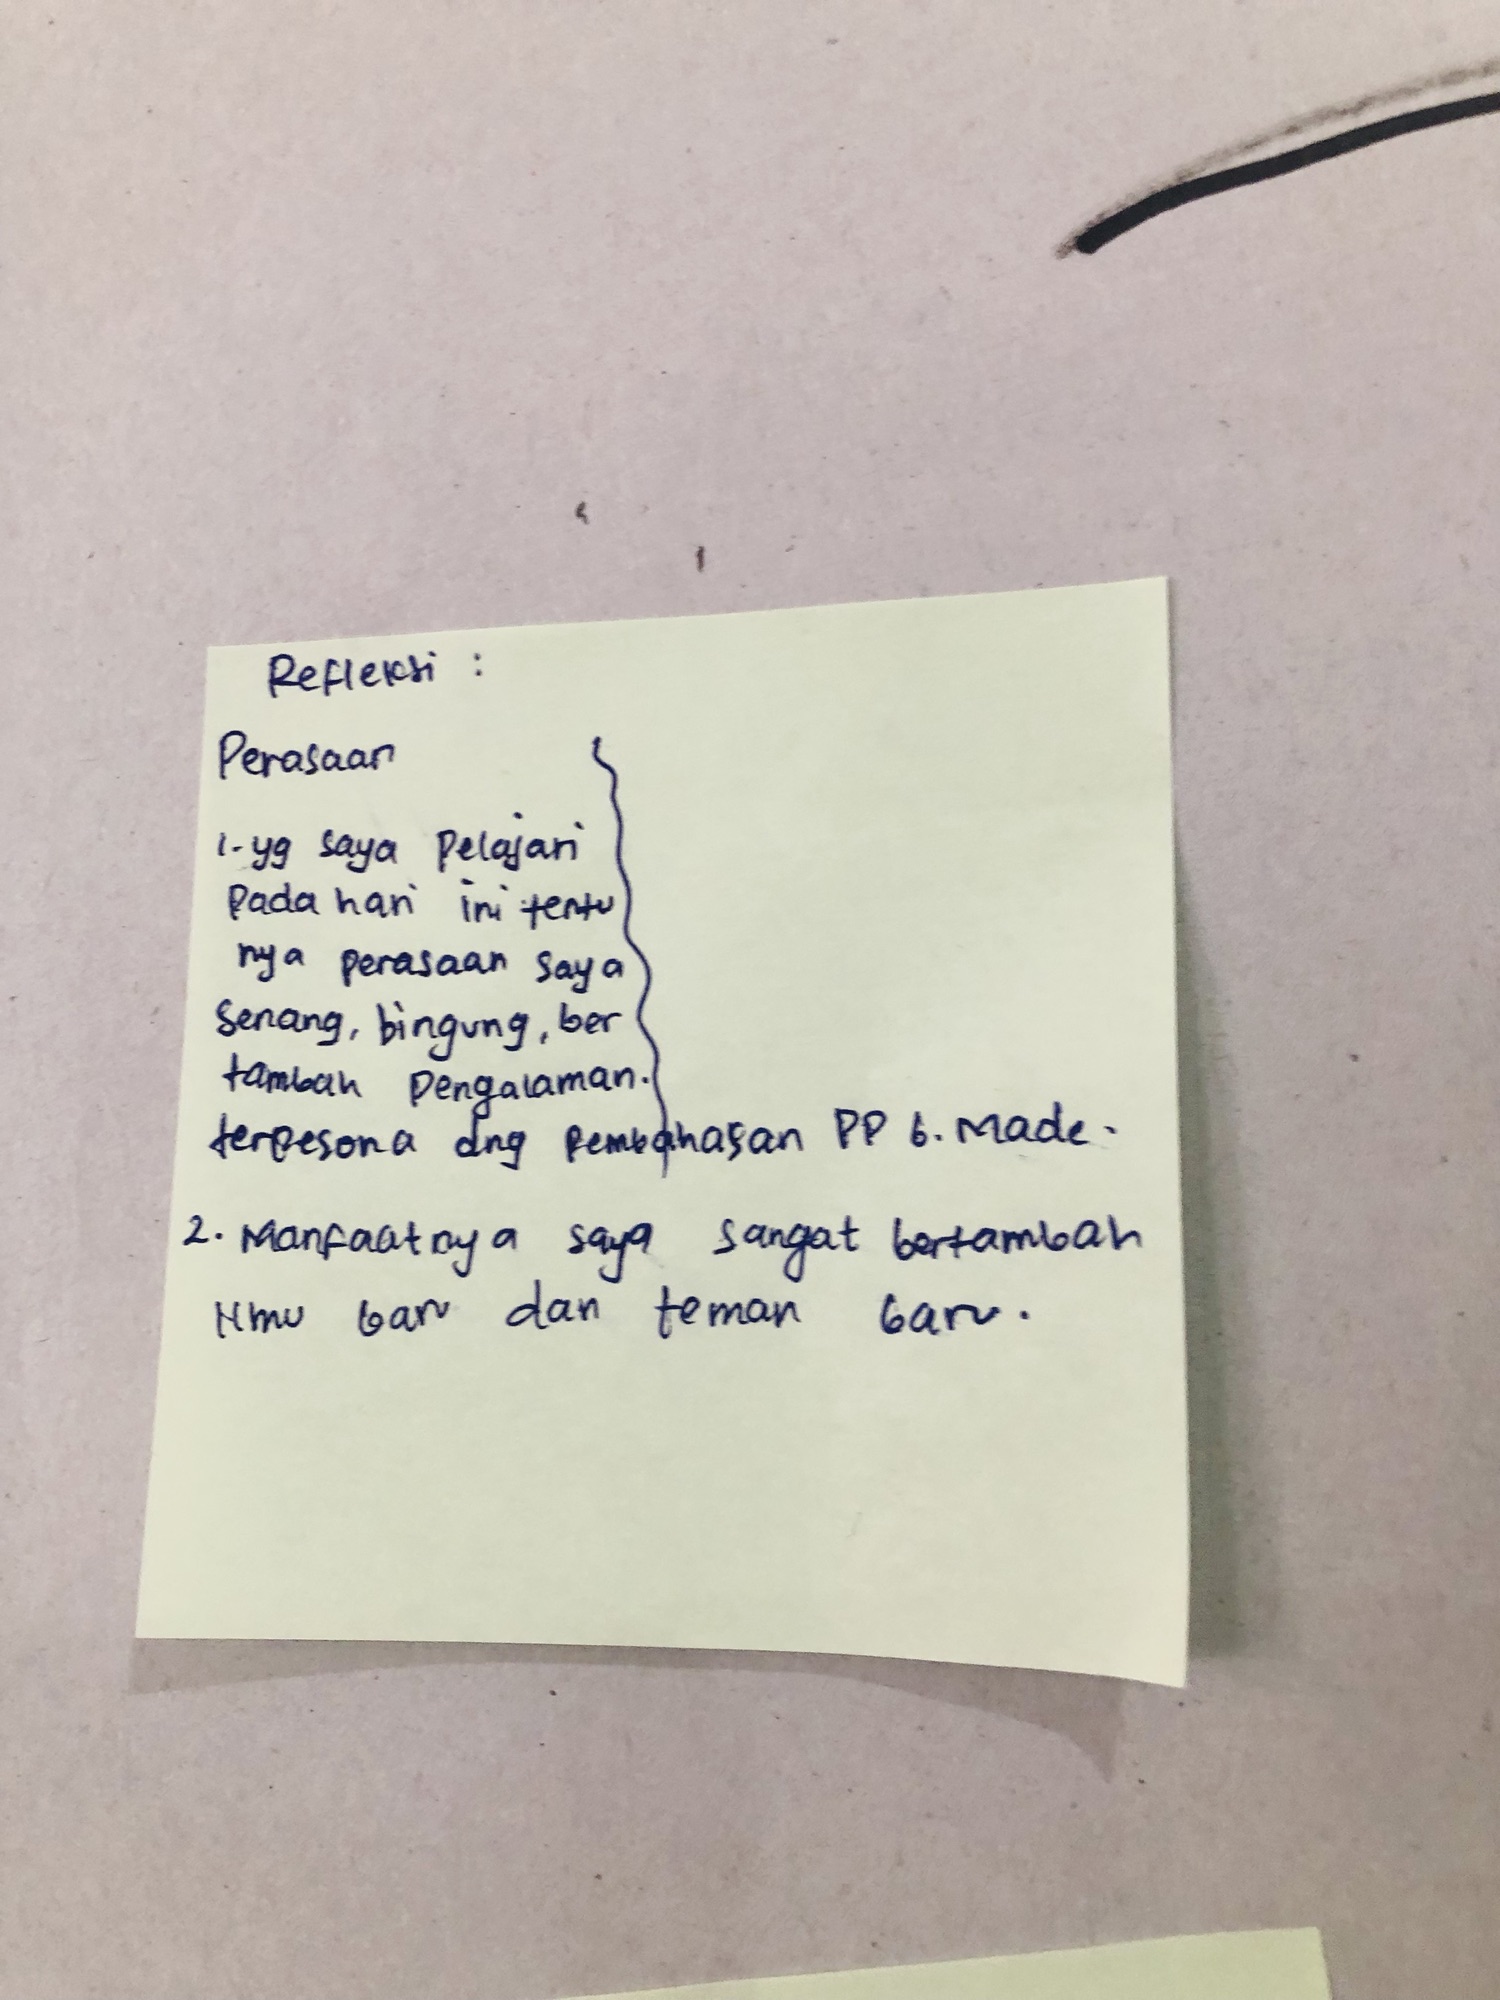 Refleksi :
Perasaan
1. yg saya pelajari
pada hari ini tentu
nya perasaan saya
senang, bingung, ber
tambah pengalaman.
terpesona dng pembahasan PP b. Made.
2. Manfaatnya saya sangat bertambah
Ilmu baru dan teman baru.